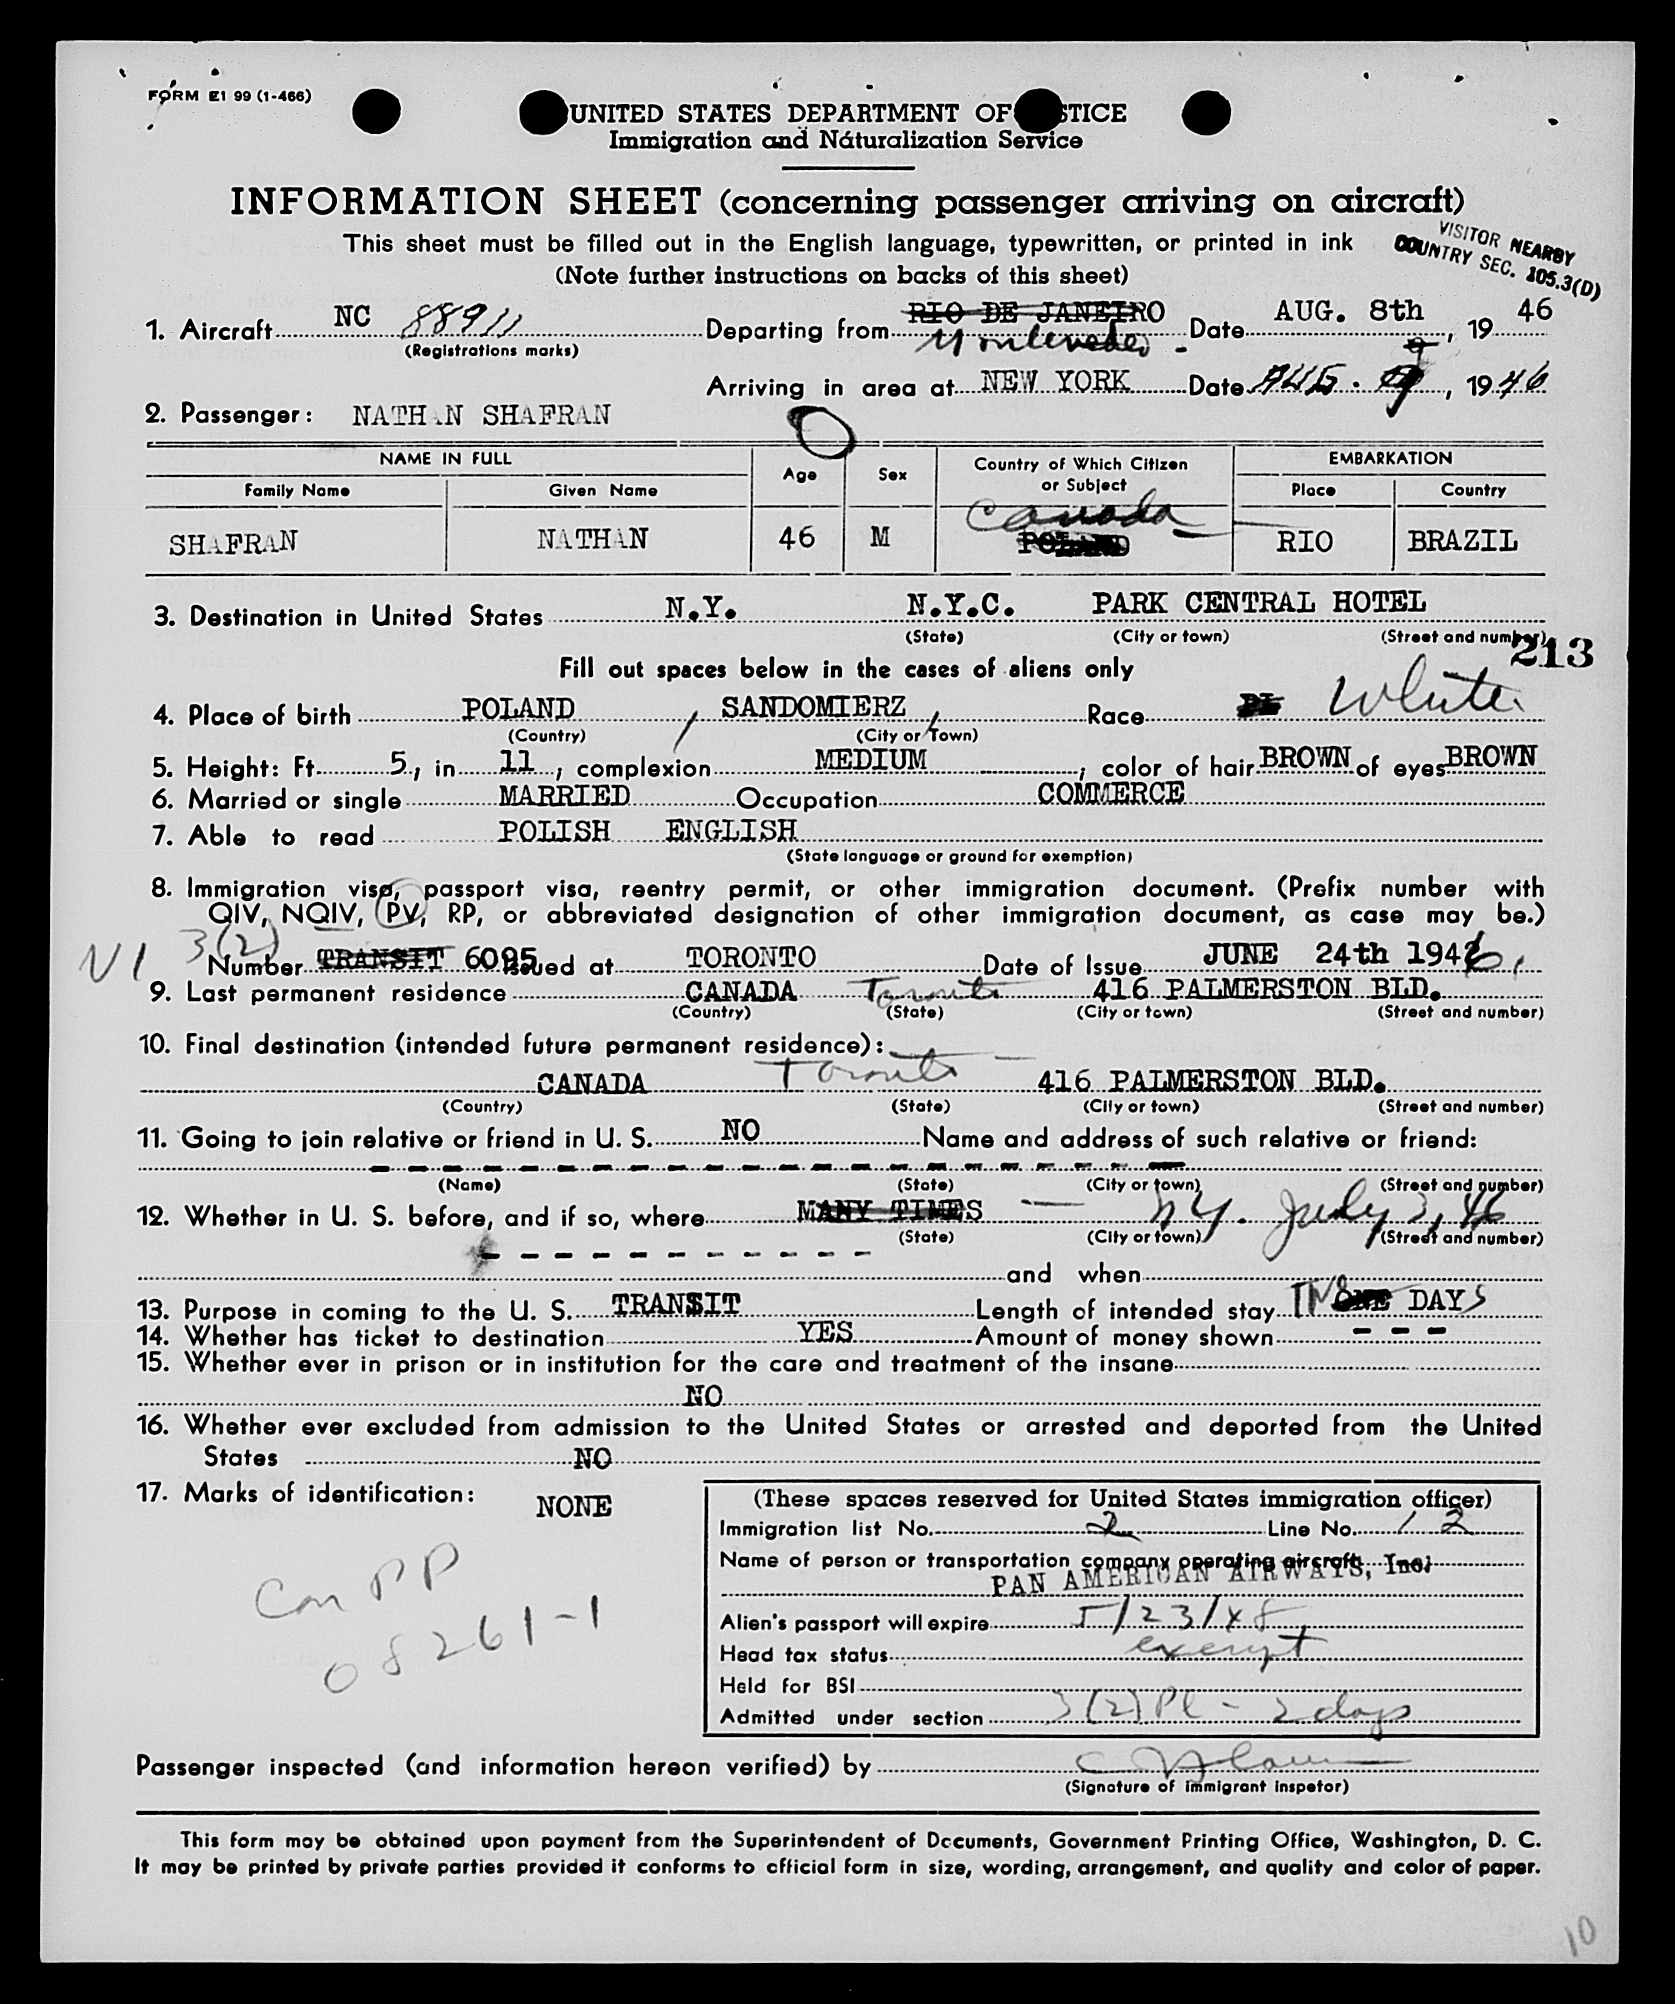 FORM E1 99 (1-466)
UNITED STATES DEPARTMENT OF STICE
Immigration and Naturalization Service
INFORMATION SHEET (concerning passenger arriving on aircraft)
This sheet must be filled out in the English language, typewritten, or printed in ink
(Note further instructions on backs of this sheet)
VISITOR NEARBY
COUNTRY SEC. 105.3(D)
1. Aircraft NC 88911 Departing from RIO DE JANEIRO Date AUG. 8th, 19 46
(Registrations marks) Montevedeo - 9
Arriving in area at NEW YORK Date AUG. 9, 19 46
2. Passenger: NATHAN SHAFRAN
NAME IN FULL Age Sex Country of Which Citizen or Subject EMBARKATION
Family Name Given Name Place Country
Canada
SHAFRAN NATHAN 46 M POLAND RIO BRAZIL
3. Destination in United States N.Y. N.Y.C. PARK CENTRAL HOTEL
(State) (City or town) (Street and number)
213
Fill out spaces below in the cases of aliens only
4. Place of birth POLAND, SANDOMIERZ, Race PL White
(Country) (City or Town)
5. Height: Ft. 5, in. 11; complexion MEDIUM; color of hair BROWN of eyes BROWN
6. Married or single MARRIED Occupation COMMERCE
7. Able to read POLISH ENGLISH
(State language or ground for exemption)
8. Immigration visa, passport visa, reentry permit, or other immigration document. (Prefix number with
QIV, NQIV, PV, RP, or abbreviated designation of other immigration document, as case may be.)
VI 3(2)
Number TRANSIT 6095 Issued at TORONTO Date of Issue JUNE 24th 1946,
9. Last permanent residence CANADA Toronto 416 PALMERSTON BLD.
(Country) (State) (City or town) (Street and number)
10. Final destination (intended future permanent residence):
CANADA Toronto 416 PALMERSTON BLD.
(Country) (State) (City or town) (Street and number)
11. Going to join relative or friend in U. S. NO Name and address of such relative or friend:
(Name) (State) (City or town) (Street and number)
12. Whether in U. S. before, and if so, where MANY TIMES — N.Y. July 3, 46
(State) (City or town) (Street and number)
and when
13. Purpose in coming to the U. S. TRANSIT Length of intended stay TWO ONE DAYS
14. Whether has ticket to destination YES Amount of money shown - - -
15. Whether ever in prison or in institution for the care and treatment of the insane
NO
16. Whether ever excluded from admission to the United States or arrested and deported from the United
States NO
17. Marks of identification: NONE
Can PP
08261-1
(These spaces reserved for United States immigration officer)
Immigration list No. 2 Line No. 12
Name of person or transportation company operating aircraft
PAN AMERICAN AIRWAYS, Inc.
Alien's passport will expire 5/23/48
Head tax status exempt
Held for BSI
Admitted under section 3(2) Pl - 2 days
Passenger inspected (and information hereon verified) by
(Signature of immigrant inspetor)
This form may be obtained upon payment from the Superintendent of Documents, Government Printing Office, Washington, D. C.
It may be printed by private parties provided it conforms to official form in size, wording, arrangement, and quality and color of paper.
10